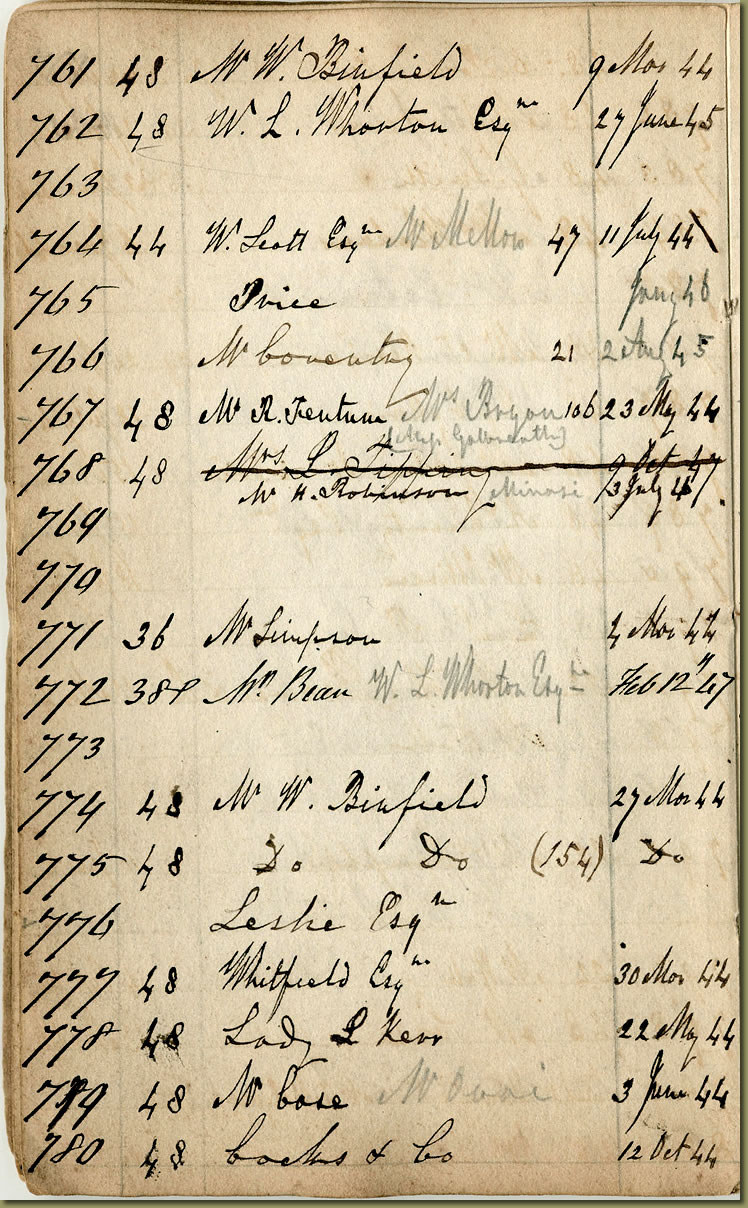 761 48 Mr W. Binfield 9 Mar 44
762 48 W. L. Whorton Esqre 27 June 45
763
764 44 W. Scott Esqre Mr Mellon 47 11 July 44
765 Price Jany 46
766 Mr Coventry 21 2 Aug 45
767 48 Mr R. Fentum Mrs Bryon 106 23 May 44
768 48 Mrs. L. Tipping 9 Oct 47
Mr H. Robinson Minasi 13 July 4
769
770
771 36 Mr Simpson 4 Mar 44
772 38 Mr Bean W. L. Whorton Esqre Feb 12th 47
773
774 48 Mr W. Binfield 27 Mar 44
775 48 Do Do (154) Do
776 Leslie Esqr
777 48 Whitfield Esqre 30 Mar 44
778 48 Lady L Kerr 22 May 44
779 48 Mr Case 3 June 44
780 48 Cocks & Co 12 Oct 44